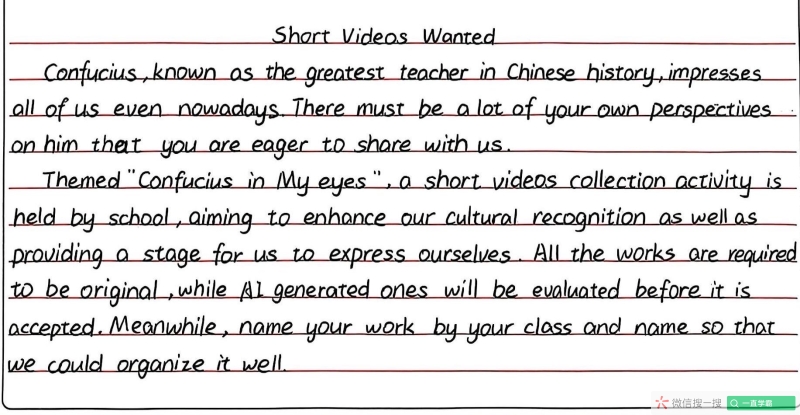 Short Videos Wanted
Confucius, known as the greatest teacher in Chinese history, impresses
all of us even nowadays. There must be a lot of your own perspectives
on him that you are eager to share with us.
Themed "Confucius in My eyes", a short videos collection activity is
held by school, aiming to enhance our cultural recognition as well as
providing a stage for us to express ourselves. All the works are required
to be original, while AI generated ones will be evaluated before it is
accepted. Meanwhile, name your work by your class and name so that
we could organize it well.
微信搜一搜 一百学霸